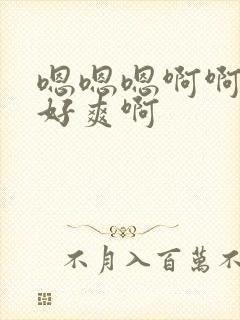 嗯嗯嗯啊啊
好爽啊
不月入百萬不